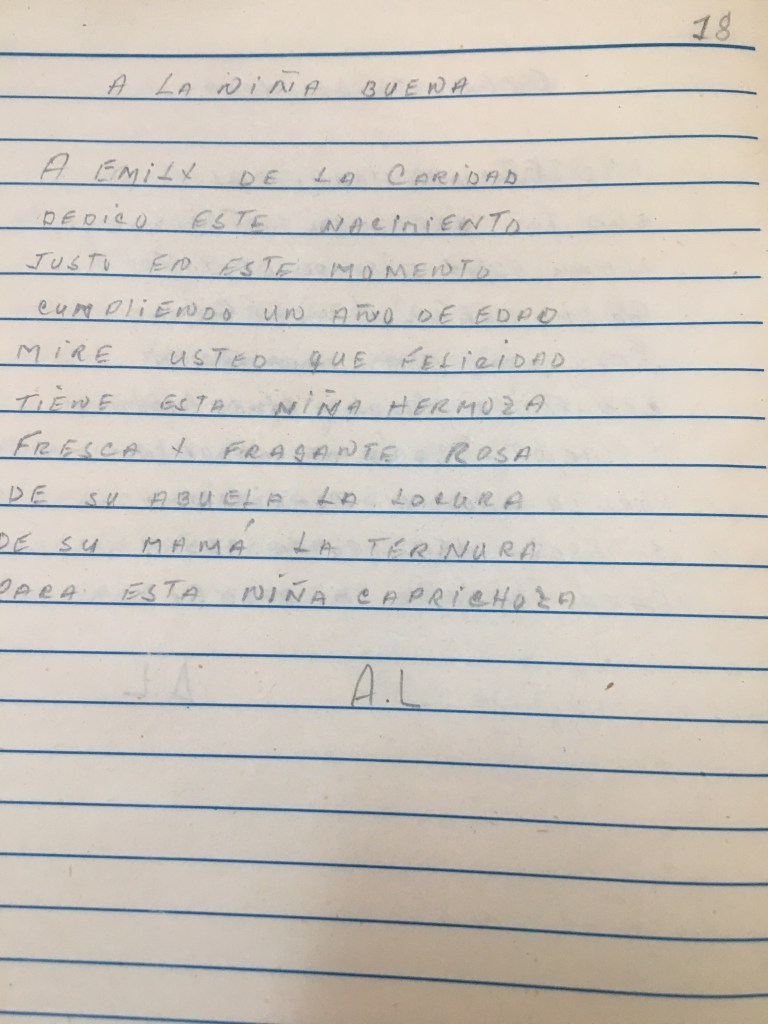 18
A LA NIÑA BUENA
A EMILY DE LA CARIDAD
DEDICO ESTE NACIMIENTO
JUSTO EN ESTE MOMENTO
CUMPLIENDO UN AÑO DE EDAD
MIRE USTED QUE FELICIDAD
TIENE ESTA NIÑA HERMOZA
FRESCA Y FRAGANTE ROSA
DE SU ABUELA LA LOCURA
DE SU MAMÁ LA TERNURA
PARA ESTA NIÑA CAPRICHOZA
A.L